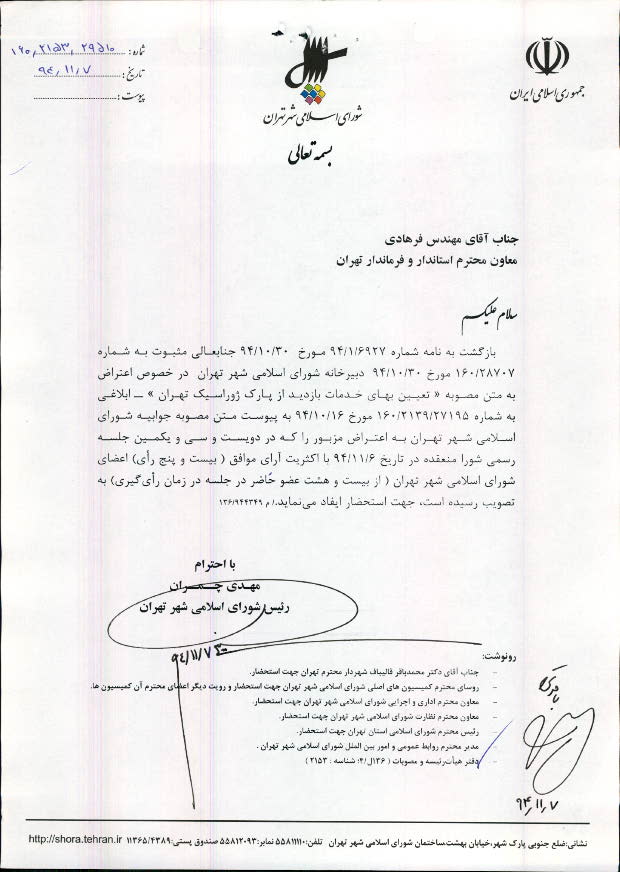 جمهوری اسلامی ایران
شورای اسلامی شهر تهران
بسمه تعالی
شماره : ۱۶۰,۲۱۵۳,۲۹۵۱۰
تاریخ : ۹۴,۱۱,۷
پیوست :
جناب آقای مهندس فرهادی
معاون محترم استاندار و فرماندار تهران
سلام علیکم
بازگشت به نامه شماره ۹۴/۱/۶۹۲۷ مورخ ۹۴/۱۰/۳۰ جنابعالی مثبوت به شماره
۱۶۰/۲۸۷۰۷ مورخ ۹۴/۱۰/۳۰ دبیرخانه شورای اسلامی شهر تهران در خصوص اعتراض
به متن مصوبه « تعیین بهای خدمات بازدید از پارک ژوراسیک تهران » ــ ابلاغی
به شماره ۱۶۰/۲۱۳۹/۲۷۱۹۵ مورخ ۹۴/۱۰/۱۶ به پیوست متن مصوبه جوابیه شورای
اسلامی شهر تهران به اعتراض مزبور را که در دویست و سی و یکمین جلسه
رسمی شورا منعقده در تاریخ ۹۴/۱۱/۶ با اکثریت آرای موافق ( بیست و پنج رأی) اعضای
شورای اسلامی شهر تهران ( از بیست و هشت عضو حاضر در جلسه در زمان رأی‌گیری) به
تصویب رسیده است، جهت استحضار ایفاد می‌نماید./ م ۱۳۶/۹۴۴۳۴۹
با احترام
مهدی چمران
رئیس شورای اسلامی شهر تهران
۹۴/۱۱/۷
رونوشت:
– جناب آقای دکتر محمدباقر قالیباف شهردار محترم تهران جهت استحضار.
– روسای محترم کمیسیون های اصلی شورای اسلامی شهر تهران جهت استحضار و رویت دیگر اعضای محترم آن کمیسیون ها.
– معاون محترم اداری و اجرایی شورای اسلامی شهر تهران جهت استحضار.
– معاون محترم نظارت شورای اسلامی شهر تهران جهت استحضار.
– رئیس محترم شورای اسلامی استان تهران جهت استحضار.
– مدیر محترم روابط عمومی و امور بین الملل شورای اسلامی شهر تهران .
– دفتر هیأت‌رئیسه و مصوبات ( ۱۳۶ال/۴: شناسه : ۲۱۵۳ )
۹۴,۱۱,۷
نشانی:ضلع جنوبی پارک شهر،خیابان بهشت،ساختمان شورای اسلامی شهر تهران تلفن:۵۵۸۱۱۱۱۰ نمابر:۵۵۸۱۲۰۹۳ صندوق پستی:۱۱۳۶۵/۴۳۸۹ http://shora.tehran.ir